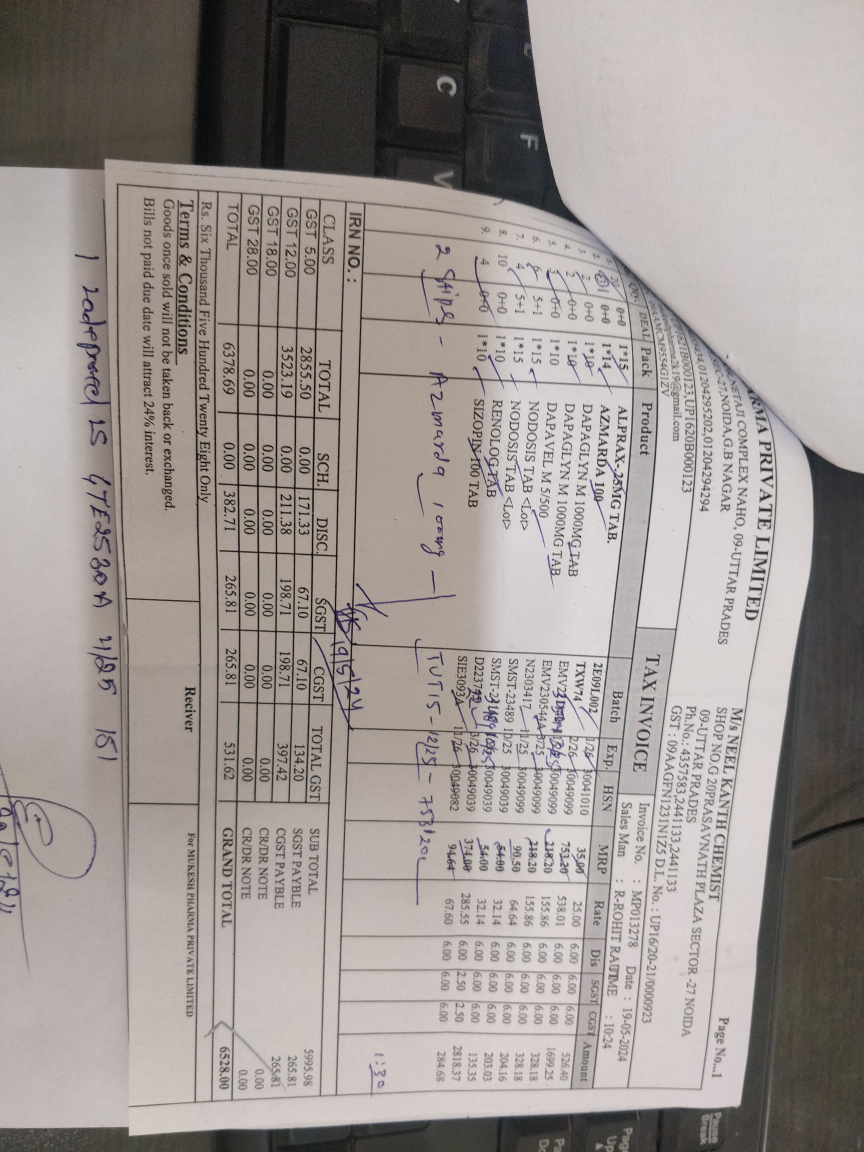 ARMA PRIVATE LIMITED
NETAJI COMPLEX NAHO, 09-UTTAR PRADES
27,NOIDA,G.B NAGAR
01204295202,01204294294
UP1620B000123
k19@gmail.com
Page No...1
M/s NEEL KANTH CHEMIST
SHOP NO.G 20PRASAVNATH PLAZA SECTOR -27 NOIDA
09-UTTAR PRADES
Ph.No.: 4357583,2441133,2441133
GST : 09AAGFN1231N1Z5 D.L. No. : UP16/20-21/0000923
TAX INVOICE
Invoice No. : MP013278 Date : 19-05-2024
Sales Man : R-ROHIT : 10:24
DEAL Pack Product Batch Exp. HSN MRP Rate Dis SGST CGST Amount
0+0 1*15 ALPRAX-.25MG TAB. 2E09L002 1/26 30041010 35.00 25.00 6.00 6.00 6.00 526.40
0+0 1*14 AZMARDA 100 TXW74 2/26 30049099 753.20 538.01 6.00 6.00 6.00 1699.25
3. 2 0+0 1*10 DAPAGLYN M 1000MG TAB 30049099 218.20 155.86 6.00 6.00 6.00 328.18
4. 2 0+0 1*10 DAPAGLYN M 1000MG TAB EMV230544A 30049099 218.20 155.86 6.00 6.00 6.00 328.18
5. 0+0 1*10 DAPAVEL M 5/500 N2303417 11/25 30049099 90.50 64.64 6.00 6.00 6.00 204.16
6. 5+1 1*15 NODOSIS TAB <Lot> SMST-23489 10/25 30049039 54.00 32.14 6.00 6.00 6.00 203.03
7. 4 5+1 1*15 NODOSIS TAB <Lot> 30049039 54.00 32.14 6.00 6.00 6.00 135.35
8. 10 0+0 1*10 RENOLOG TAB 3/26 30049039 374.00 285.55 6.00 2.50 2.50 2818.37
9. 4 0+0 1*10 SIZOPIN 100 TAB SIE3093A 11/26 30049082 94.64 67.60 6.00 6.00 6.00 284.68
2 Stripes - Azmarda 100mg - TUT15 - 12/25 - 753/20
1:30
IRN NO. :
19/5/24
CLASS TOTAL SCH. DISC. SGST CGST TOTAL GST
GST 5.00 2855.50 0.00 171.33 67.10 67.10 134.20
GST 12.00 3523.19 0.00 211.38 198.71 198.71 397.42
GST 18.00 0.00 0.00 0.00 0.00 0.00 0.00
GST 28.00 0.00 0.00 0.00 0.00 0.00 0.00
TOTAL 6378.69 0.00 382.71 265.81 265.81 531.62
SUB TOTAL 5995.98
SGST PAYBLE 265.81
CGST PAYBLE 265.81
CR/DR NOTE 0.00
CR/DR NOTE 0.00
GRAND TOTAL 6528.00
Rs. Six Thousand Five Hundred Twenty Eight Only
Terms & Conditions
Goods once sold will not be taken back or exchanged.
Bills not paid due date will attract 24% interest.
Reciver
For MUKESH PHARMA PRIVATE LIMITED
GTE2530A 4/25 151
C
F
V
Pause
Break